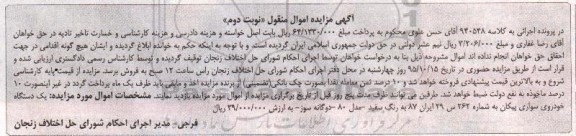 آگهی مزایده اموال منقول «نوبت دوم»
در پرونده اجرائی به کلاسه ۹۴۰۵۳۸ آقای حسن علوی محکوم به پرداخت مبلغ ۶۴/۱۳۳۰/۰۰۰ ریال بابت اصل خواسته و هزینه دادرسی و هزینه کارشناسی و خسارت تاخیر تادیه در حق خواهان
آقای رضا غفاری و مبلغ ۳/۲۰۶/۰۰۰ ریال نیم عشر دولتی در حق دولت جمهوری اسلامی ایران گردیده است و با توجه به اینکه حکم به خوانده ابلاغ گردیده و ایشان هیچ گونه اقدامی در جهت
احقاق حق خواهان انجام نداده اند اموال مشروحه ذیل بنا به درخواست خواهان توسط اجرای احکام شورای حل اختلاف زنجان توقیف گردیده و توسط کارشناس رسمی دادگستری ارزیابی شده و
قرار است از طریق مزایده حضوری در تاریخ ۹۵/۱۰/۱۵ روز چهارشنبه در محل دفتر اجرای احکام شورای حل اختلاف زنجان راس ساعت ۱۲ صبح به فروش برسد. مزایده از قیمت پایه کارشناسی
شروع و به بالاترین قیمت پیشنهادی فروخته خواهد شد و ۱۰ درصد ثمن معامله نقدا بصورت چک بانکی(تضمینی) از برنده مزایده اخذ و مابقی باید ظرف یک ماه پرداخت گردد در غیر اینصورت ۱۰
درصد ماخوذه به نفع دولت ضبط خواهد شد. طرفین می توانند ظرف مدت پنج روز قبل از تاریخ برگزاری مزایده از اموال مورد مزایده بازدید نمایند. مشخصات اموال مورد مزایده: یک دستگاه
خودروی سواری پیکان به شماره ۲۶۲ س ۲۹ ایران ۸۷ به رنگ سفید -مدل ۸۰ -دوگانه سوز- به ارزش ۲۹/۰۰۰/۰۰۰ ریال
فرجی- مدیر اجرای احکام شورای حل اختلاف زنجان